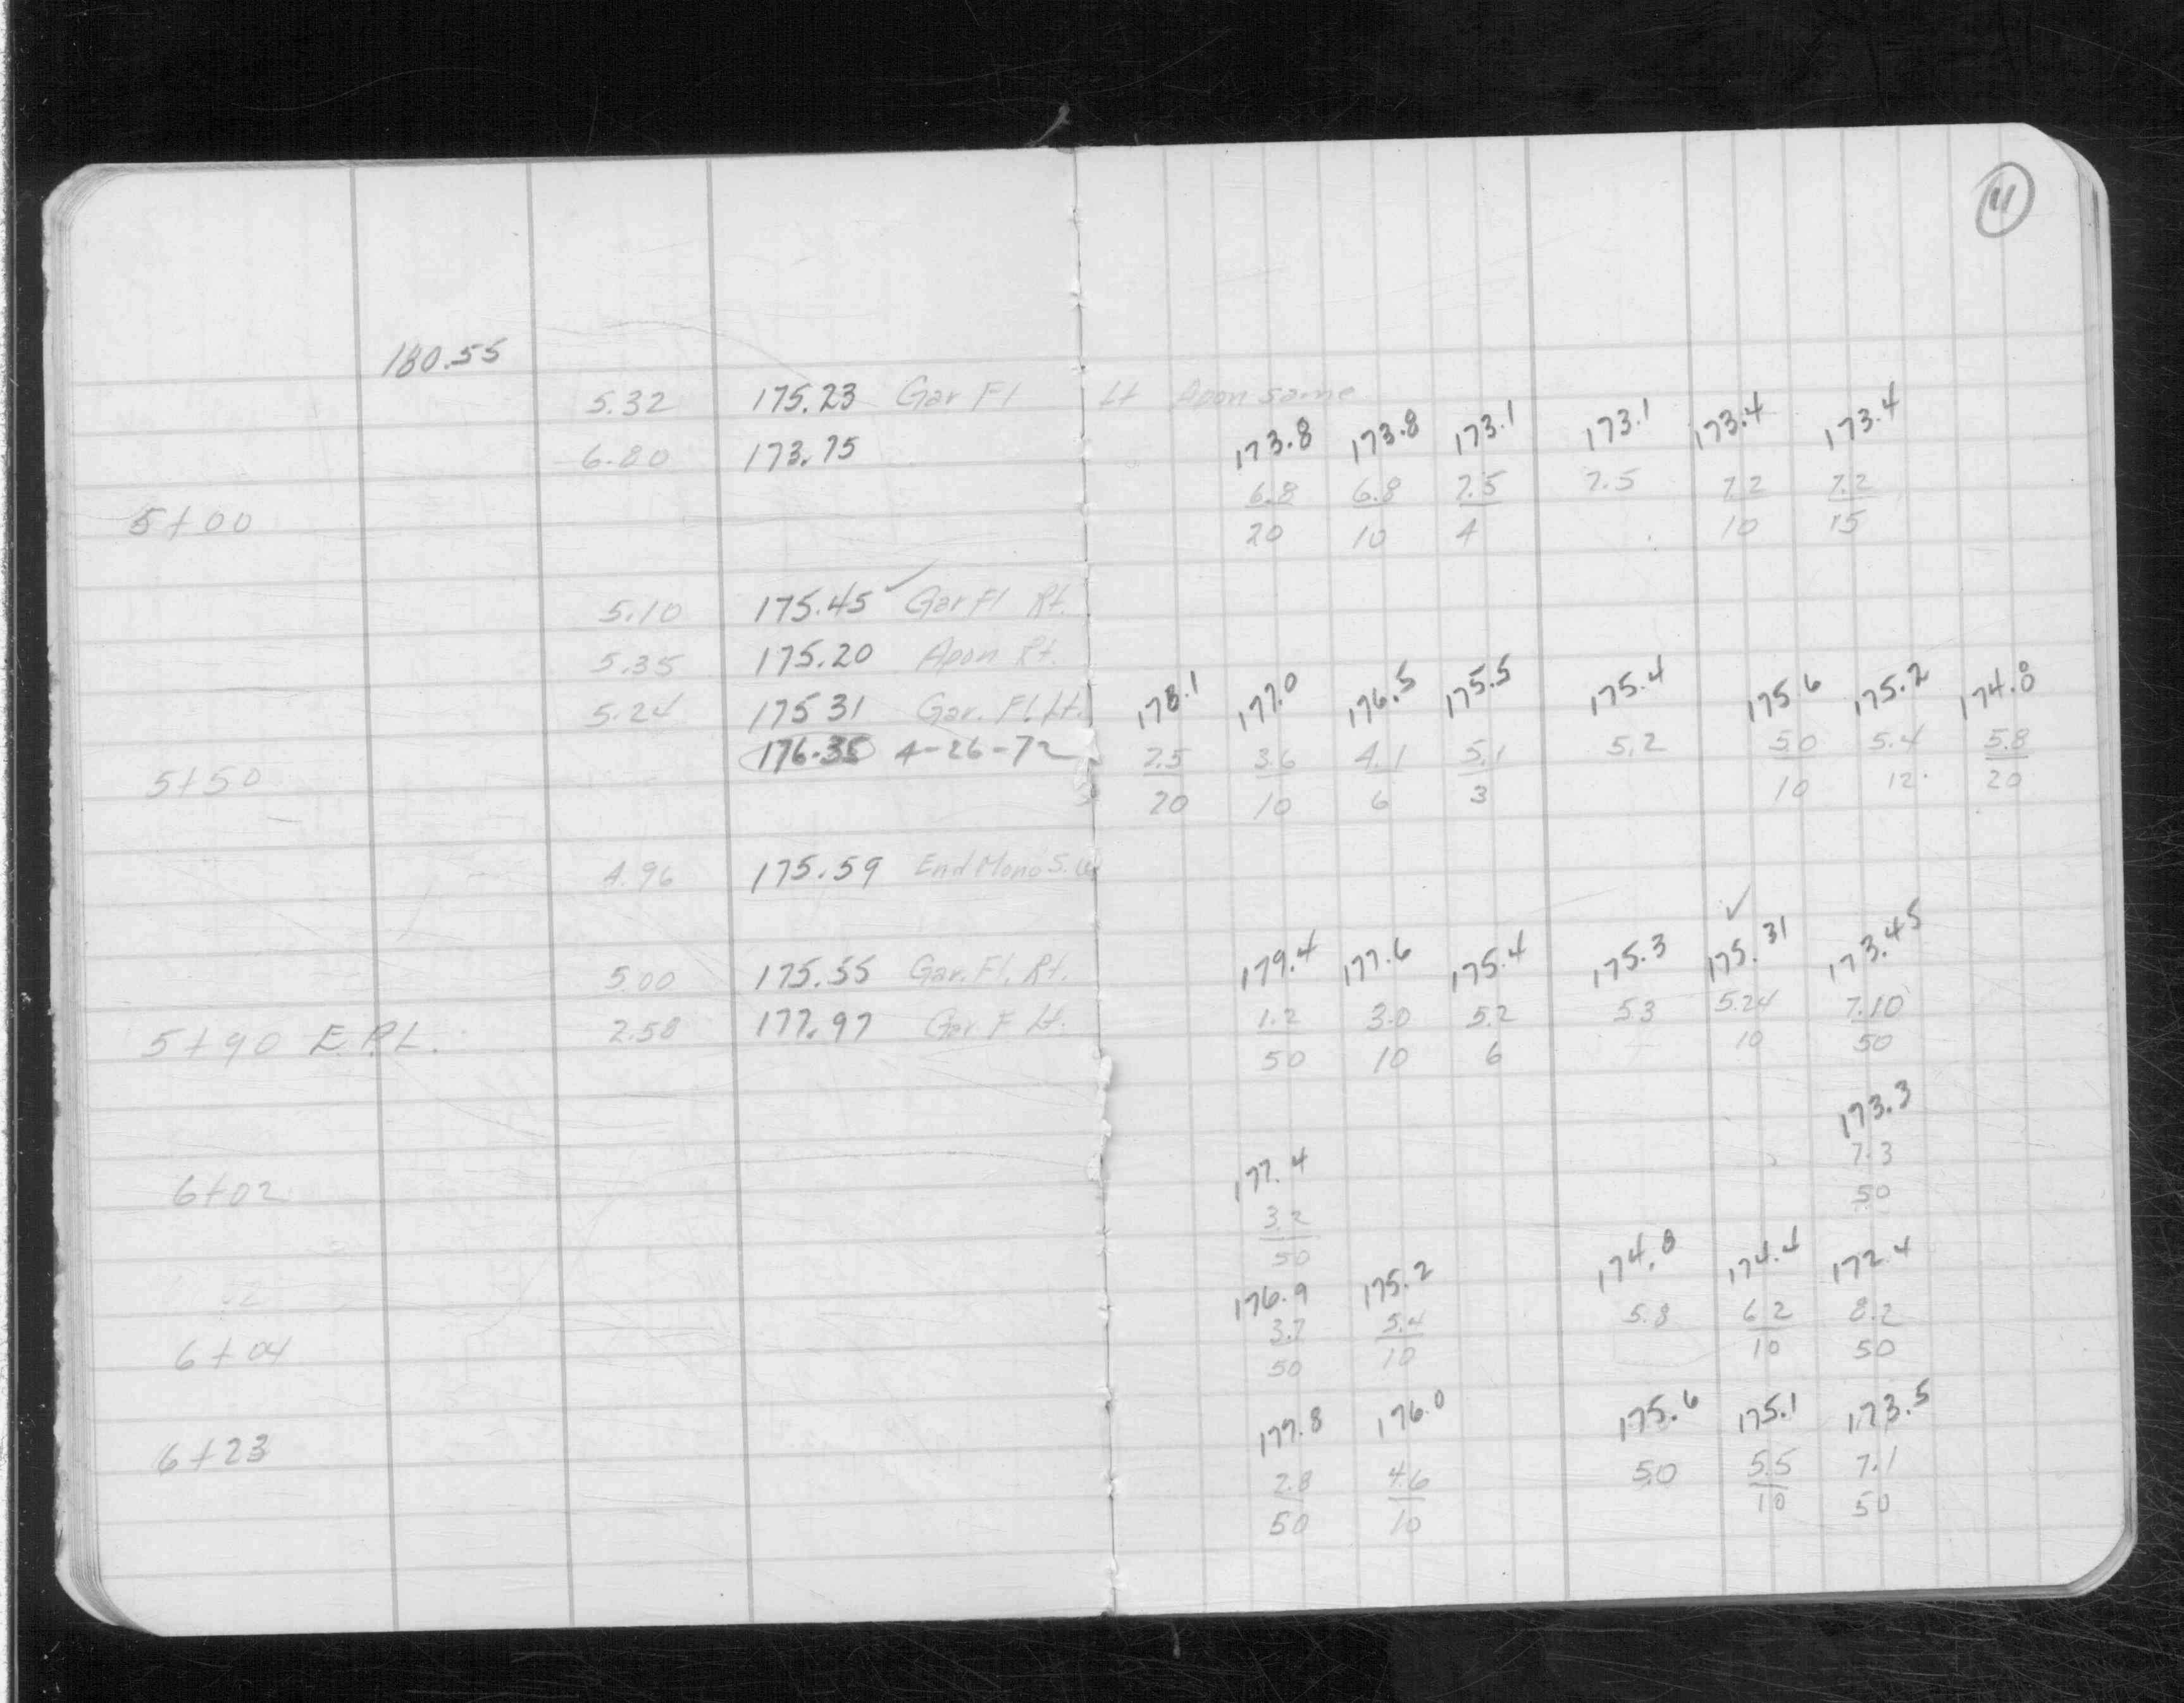 11
180.55
5.32 175.23 Gar Fl Lt Apon same
6.80 173.75
173.8 173.8 173.1 173.1 173.4 173.4
6.8 6.8 7.5 7.5 7.2 7.2
5+00 20 10 4 10 15
5.10 175.45 ✓ Gar Fl Rt.
5.35 175.20 Apon Rt.
5.24 175 31 Gar. Fl. Lt.
178.1 177.0 176.5 175.5 175.4 175.6 175.2 174.8
176.35 4-26-72
2.5 3.6 4.1 5.1 5.2 5.0 5.4 5.8
5+50 20 10 6 3 10 12 20
4.96 175.59 End Mono S.W
✓
5.00 175.55 Gar. Fl. Rt.
179.4 177.6 175.4 175.3 175.31 173.45
5+90 E.P.L. 2.58 177.97 Gar F Lt.
1.2 3.0 5.2 5.3 5.24 7.10
50 10 6 10 50
177.4 173.3
6+02 3.2 7.3
50 50
176.9 175.2 174.8 174.4 172.4
3.7 5.4 5.8 6.2 8.2
6+04 50 10 10 50
177.8 176.0 175.6 175.1 173.5
6+23 2.8 4.6 5.0 5.5 7.1
50 10 10 50